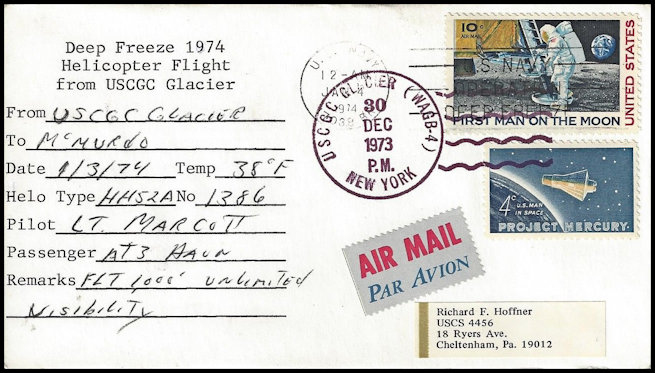 Deep Freeze 1974
Helicopter Flight
from USCGC Glacier
From USCGC GLACIER
To McMurdo
Date 1/3/74 Temp 38°F
Helo Type HH52A No 1386
Pilot LT. MARCOTT
Passenger AT3 HAUN
Remarks FLT 1000' UNLIMITED
VISIBILITY
U.S. NAVY
12-AM
JAN
4
1974
USCGC GLACIER (WAGB-4)
30
DEC
1973
P.M.
NEW YORK
10¢
AIR MAIL
UNITED STATES
FIRST MAN ON THE MOON
U.S. NAVY
OPERATION
DEEP FREEZE
4¢
U.S. MAN
IN SPACE
PROJECT MERCURY
AIR MAIL
PAR AVION
Richard F. Hoffner
USCS 4456
18 Ryers Ave.
Cheltenham, Pa. 19012